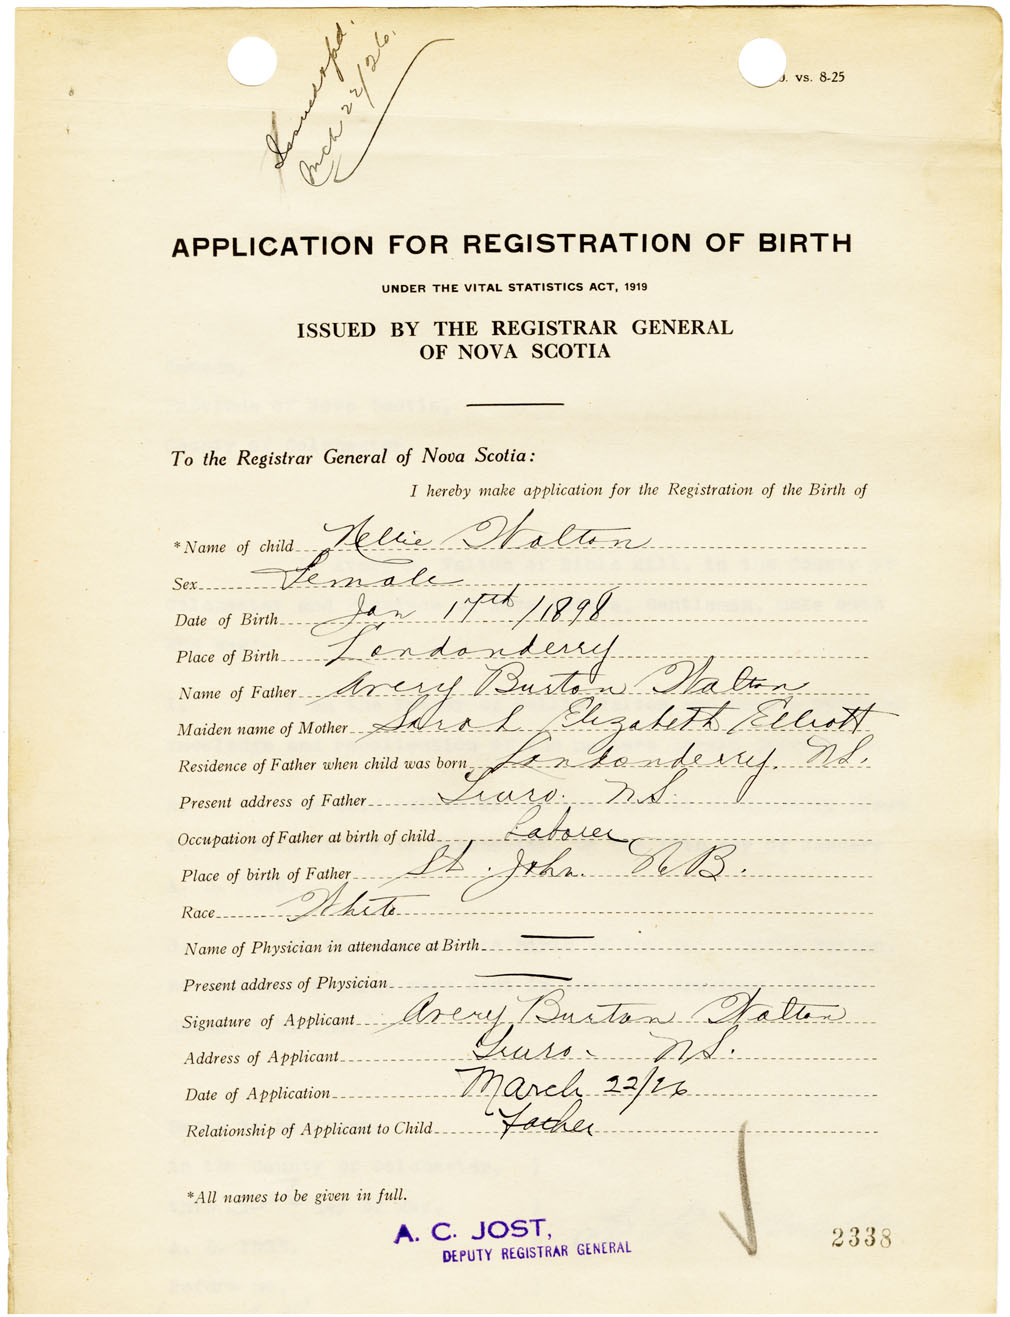 Issued & pd.
Mch 22/26.
vs. 8-25
APPLICATION FOR REGISTRATION OF BIRTH
UNDER THE VITAL STATISTICS ACT, 1919
ISSUED BY THE REGISTRAR GENERAL
OF NOVA SCOTIA
To the Registrar General of Nova Scotia:
I hereby make application for the Registration of the Birth of
*Name of child Nellie Walton
Sex Female
Date of Birth Jan 17th/1898
Place of Birth Londonderry
Name of Father Avery Burton Walton
Maiden name of Mother Sarah Elizabeth Elliott
Residence of Father when child was born Londonderry. NS.
Present address of Father Truro. NS.
Occupation of Father at birth of child Laborer
Place of birth of Father St. John. NB.
Race White
Name of Physician in attendance at Birth
Present address of Physician
Signature of Applicant Avery Burton Walton
Address of Applicant Truro. NS.
Date of Application March 22/26
Relationship of Applicant to Child Father
*All names to be given in full.
A. C. JOST,
DEPUTY REGISTRAR GENERAL
2338